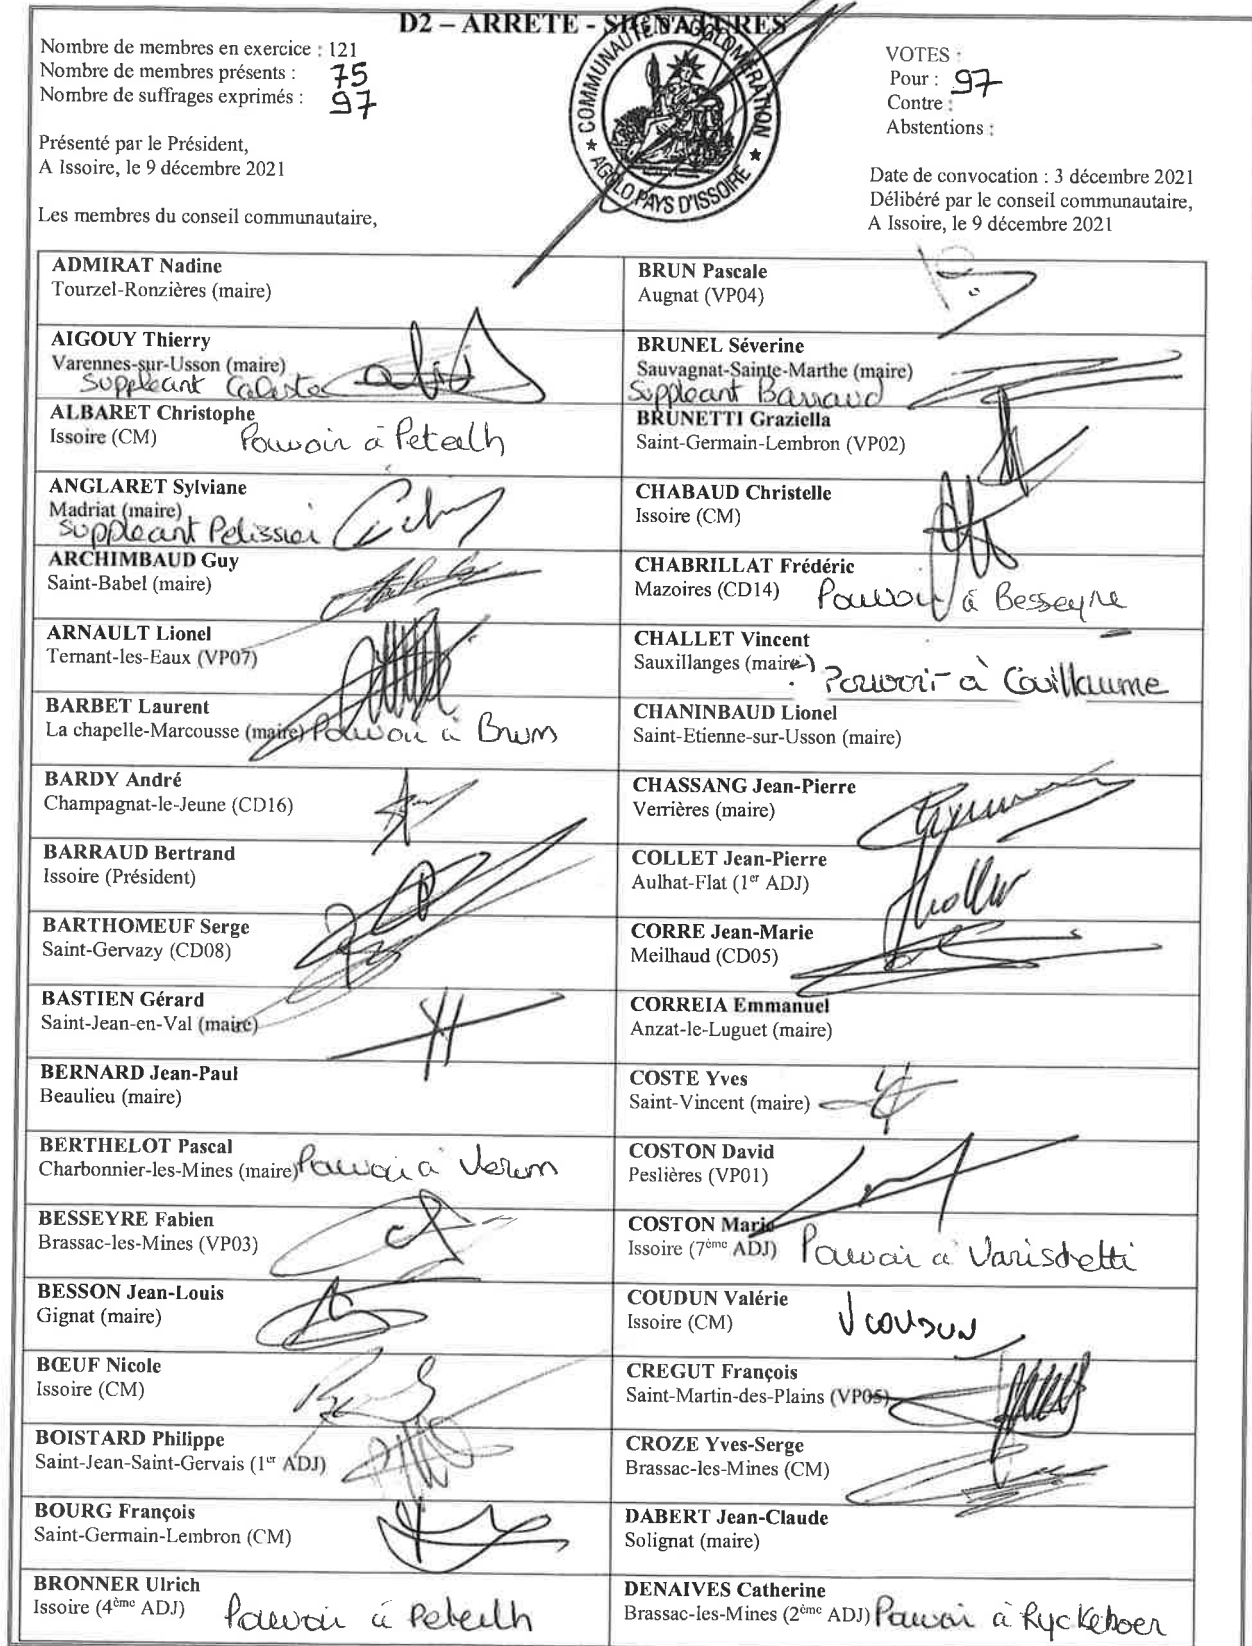 D2 – ARRETE - SIGNATURES
Nombre de membres en exercice : 121
Nombre de membres présents : 75
Nombre de suffrages exprimés : 97
Présenté par le Président,
A Issoire, le 9 décembre 2021
Les membres du conseil communautaire,
COMMUNAUTE D'AGGLOMERATION
AGGLO PAYS D'ISSOIRE
VOTES :
Pour : 97
Contre :
Abstentions :
Date de convocation : 3 décembre 2021
Délibéré par le conseil communautaire,
A Issoire, le 9 décembre 2021
ADMIRAT Nadine
Tourzel-Ronzières (maire)
AIGOUY Thierry
Varennes-sur-Usson (maire)
Suppléant
ALBARET Christophe
Issoire (CM) Pouvoir à Peteilh
ANGLARET Sylviane
Madriat (maire)
Suppléant Pelissier
ARCHIMBAUD Guy
Saint-Babel (maire)
ARNAULT Lionel
Ternant-les-Eaux (VP07)
BARBET Laurent
La chapelle-Marcousse (maire) Pouvoir à Brun
BARDY André
Champagnat-le-Jeune (CD16)
BARRAUD Bertrand
Issoire (Président)
BARTHOMEUF Serge
Saint-Gervazy (CD08)
BASTIEN Gérard
Saint-Jean-en-Val (maire)
BERNARD Jean-Paul
Beaulieu (maire)
BERTHELOT Pascal
Charbonnier-les-Mines (maire) Pouvoir à
BESSEYRE Fabien
Brassac-les-Mines (VP03)
BESSON Jean-Louis
Gignat (maire)
BŒUF Nicole
Issoire (CM)
BOISTARD Philippe
Saint-Jean-Saint-Gervais (1er ADJ)
BOURG François
Saint-Germain-Lembron (CM)
BRONNER Ulrich
Issoire (4ème ADJ) Pouvoir à Peteilh
BRUN Pascale
Augnat (VP04)
BRUNEL Séverine
Sauvagnat-Sainte-Marthe (maire)
Suppléant Barraud
BRUNETTI Graziella
Saint-Germain-Lembron (VP02)
CHABAUD Christelle
Issoire (CM)
CHABRILLAT Frédéric
Mazoires (CD14) Pouvoir à Besseyre
CHALLET Vincent
Sauxillanges (maire) Pouvoir à Couillaume
CHANINBAUD Lionel
Saint-Etienne-sur-Usson (maire)
CHASSANG Jean-Pierre
Verrières (maire)
COLLET Jean-Pierre
Aulhat-Flat (1er ADJ)
CORRE Jean-Marie
Meilhaud (CD05)
CORREIA Emmanuel
Anzat-le-Luguet (maire)
COSTE Yves
Saint-Vincent (maire)
COSTON David
Peslières (VP01)
COSTON Marie
Issoire (7ème ADJ) Pouvoir à Varischetti
COUDUN Valérie
Issoire (CM) Vcoudun
CREGUT François
Saint-Martin-des-Plains (VP05)
CROZE Yves-Serge
Brassac-les-Mines (CM)
DABERT Jean-Claude
Solignat (maire)
DENAIVES Catherine
Brassac-les-Mines (2ème ADJ) Pouvoir à Ryckeboer